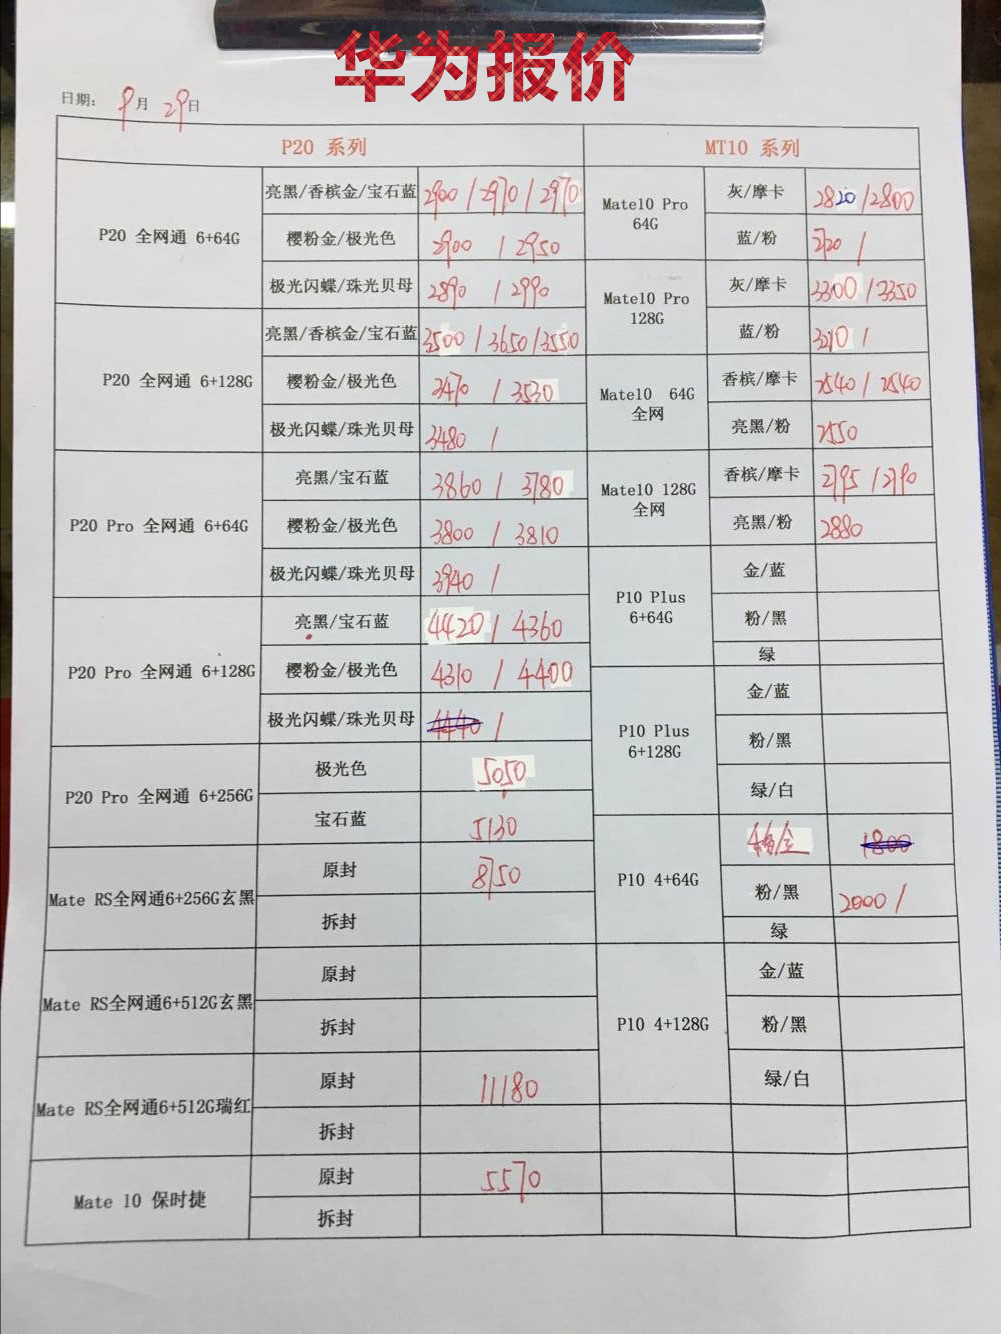 华为报价
日期: 9月 29日
P20 系列 MT10 系列
P20 全网通 6+64G
亮黑/香槟金/宝石蓝 2900 / 2970 / 2970
樱粉金/极光色 2900 / 2950
极光闪蝶/珠光贝母 2890 / 2990
P20 全网通 6+128G
亮黑/香槟金/宝石蓝 3500 / 3650 / 3550
樱粉金/极光色 3470 / 3530
极光闪蝶/珠光贝母 3480 /
P20 Pro 全网通 6+64G
亮黑/宝石蓝 3860 / 3780
樱粉金/极光色 3800 / 3810
极光闪蝶/珠光贝母 3940 /
P20 Pro 全网通 6+128G
亮黑/宝石蓝 4420 / 4360
樱粉金/极光色 4310 / 4400
极光闪蝶/珠光贝母 /
P20 Pro 全网通 6+256G
极光色 5050
宝石蓝 5130
Mate RS全网通6+256G玄黑
原封 8750
拆封
Mate RS全网通6+512G玄黑
原封
拆封
Mate RS全网通6+512G瑞红
原封 11180
拆封
Mate 10 保时捷
原封 5570
拆封
Mate10 Pro
64G
灰/摩卡 2820 / 2800
蓝/粉 2720 /
Mate10 Pro
128G
灰/摩卡 3300 / 3350
蓝/粉 3210 /
Mate10 64G
全网
香槟/摩卡 2540 / 2540
亮黑/粉 2550
Mate10 128G
全网
香槟/摩卡 2795 / 2790
亮黑/粉 2880
P10 Plus
6+64G
金/蓝
粉/黑
绿
P10 Plus
6+128G
金/蓝
粉/黑
绿/白
P10 4+64G
金 1800
粉/黑 2000 /
绿
P10 4+128G
金/蓝
粉/黑
绿/白